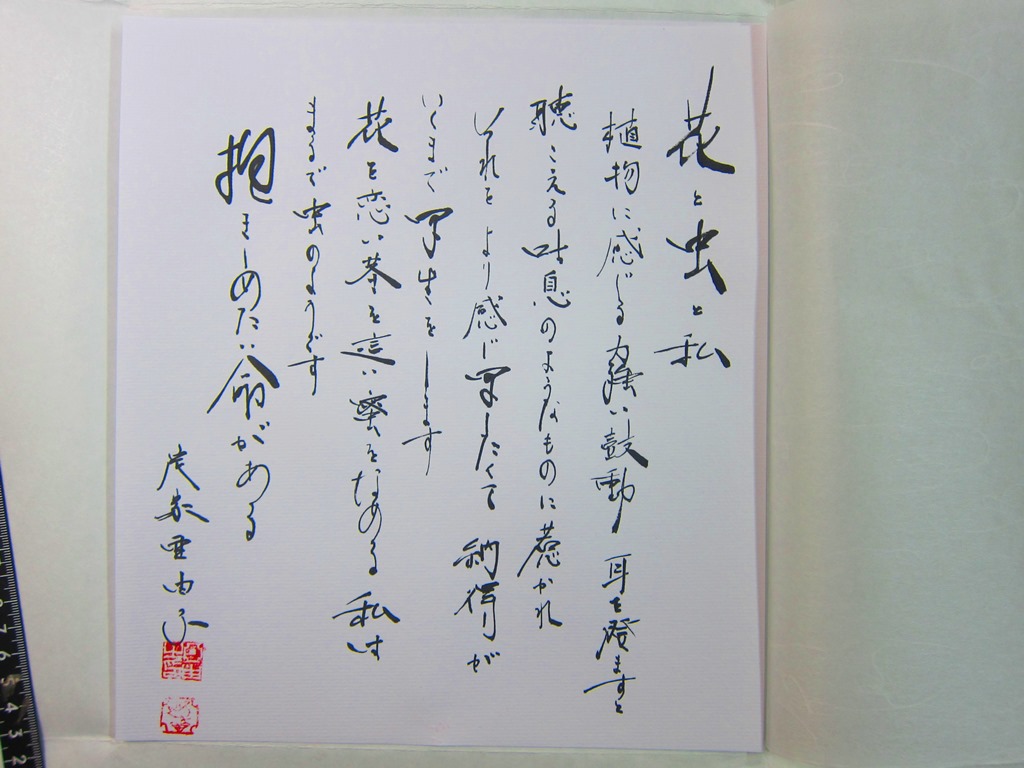 花と虫と私
植物に感じる力強い鼓動 耳を澄ますと
聴こえる吐息のようなものに惹かれ
それをより感じ写したくて 納得が
いくまで写生をします
花を恋い茎を這い蜜をなめる私は
まるで虫のようです
抱きしめたい命がある
亜由子
7 6 5 4 3 2